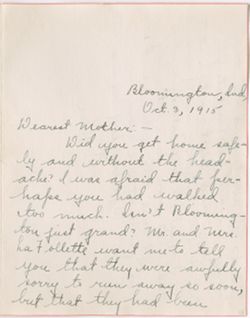 Bloomington, Ind.
Oct. 3, 1915
Dearest Mother:—
Did you get home safe-
ly and without the head-
ache? I was afraid that per-
haps you had walked
too much. Isn't Blooming-
ton just grand? Mr. and Mrs.
La Follette want me to tell
you that they were awfully
sorry to run away so soon,
but that they had been